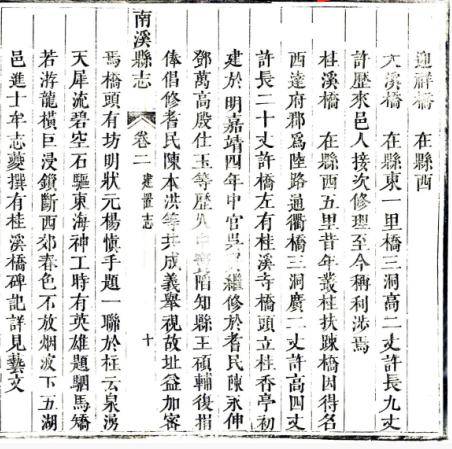 迎祥橋 在縣西
大溪橋 在縣東一里橋三洞高二丈許長九丈
許歷來邑人接次修理至今稱利涉焉
桂溪橋 在縣西五里昔年叢桂扶踈橋因得名
西達府郡爲陸路通衢橋三洞廣二丈許高四丈
許長二十丈許橋左有桂溪寺橋頭立桂香亭初
建於明嘉靖四年中官吳繼修於耆民陳永伸
鄧萬高殷仕玉等歷久知縣王碩輔復捐
俸倡修耆民陳本洪等共成義舉視故址益加密
南溪縣志 卷二 建置志 十
焉橋頭有坊明狀元楊慎手題一聯於柱云泉湧
天犀流碧空石驅東海神工時有英雄題駟馬矯
若游龍橫巨浸鎖斷西郊春色不放烟波下五湖
邑進士牟志夔撰有桂溪橋碑記詳見藝文